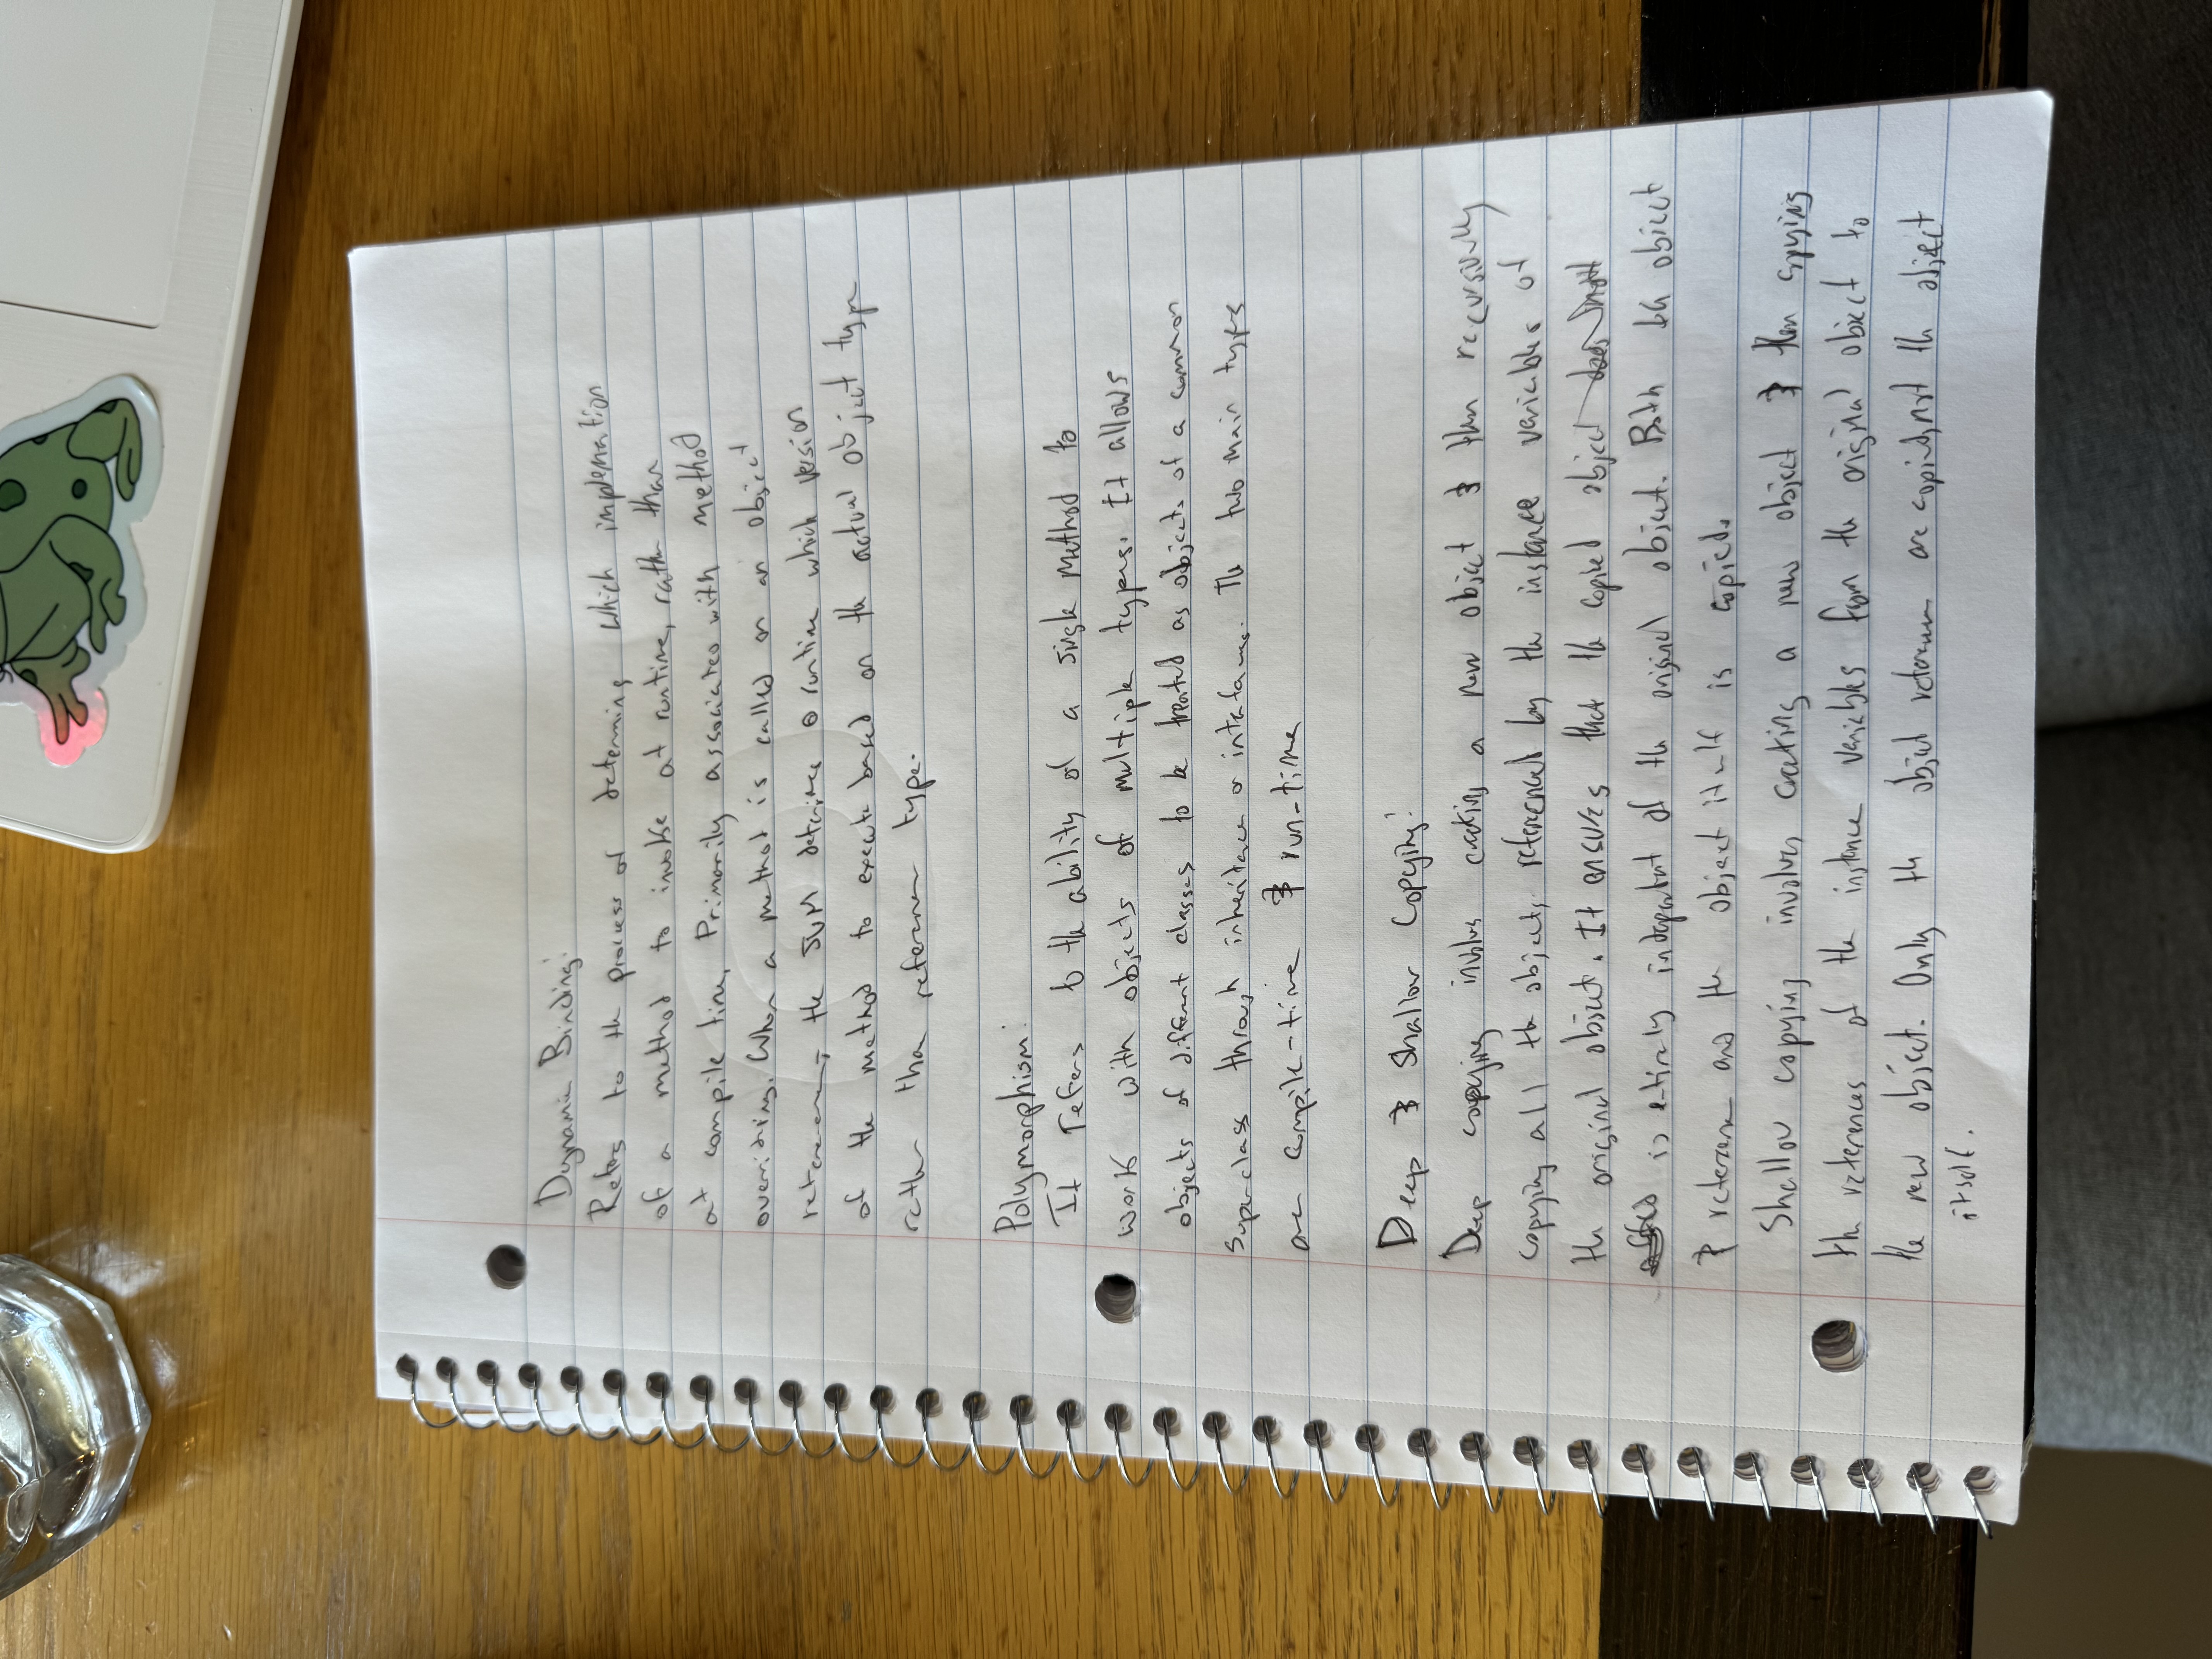 Dynamic Binding:
Refers to the process of determining which implemation
of a method to invoke at runtime, rather than
at compile time, Primarily associated with method
overriding. When a method is called on an object
reference, the JVM determines @ runtime which version
of the method to execute based on the actual object type
rather than reference type.
Polymorphism:
It refers to the ability of a single method to
work with objects of multiple types. It allows
objects of different classes to be treated as objects of a common
superclass through inheritance or interfaces. The two main types
are compile-time & run-time
Deep & Shallow Copying:
Deep copying involves creating a new object & then recursively
copying all the objects referenced by the instance variables of
the original object. It ensures that the copied object
is entirely independent of the original object. Both the object
& reference and the object itself is copied.
Shallow copying involves creating a new object & then copying
the references of the instance variables from the original object to
the new object. Only the object references are copied, not the object
itself.